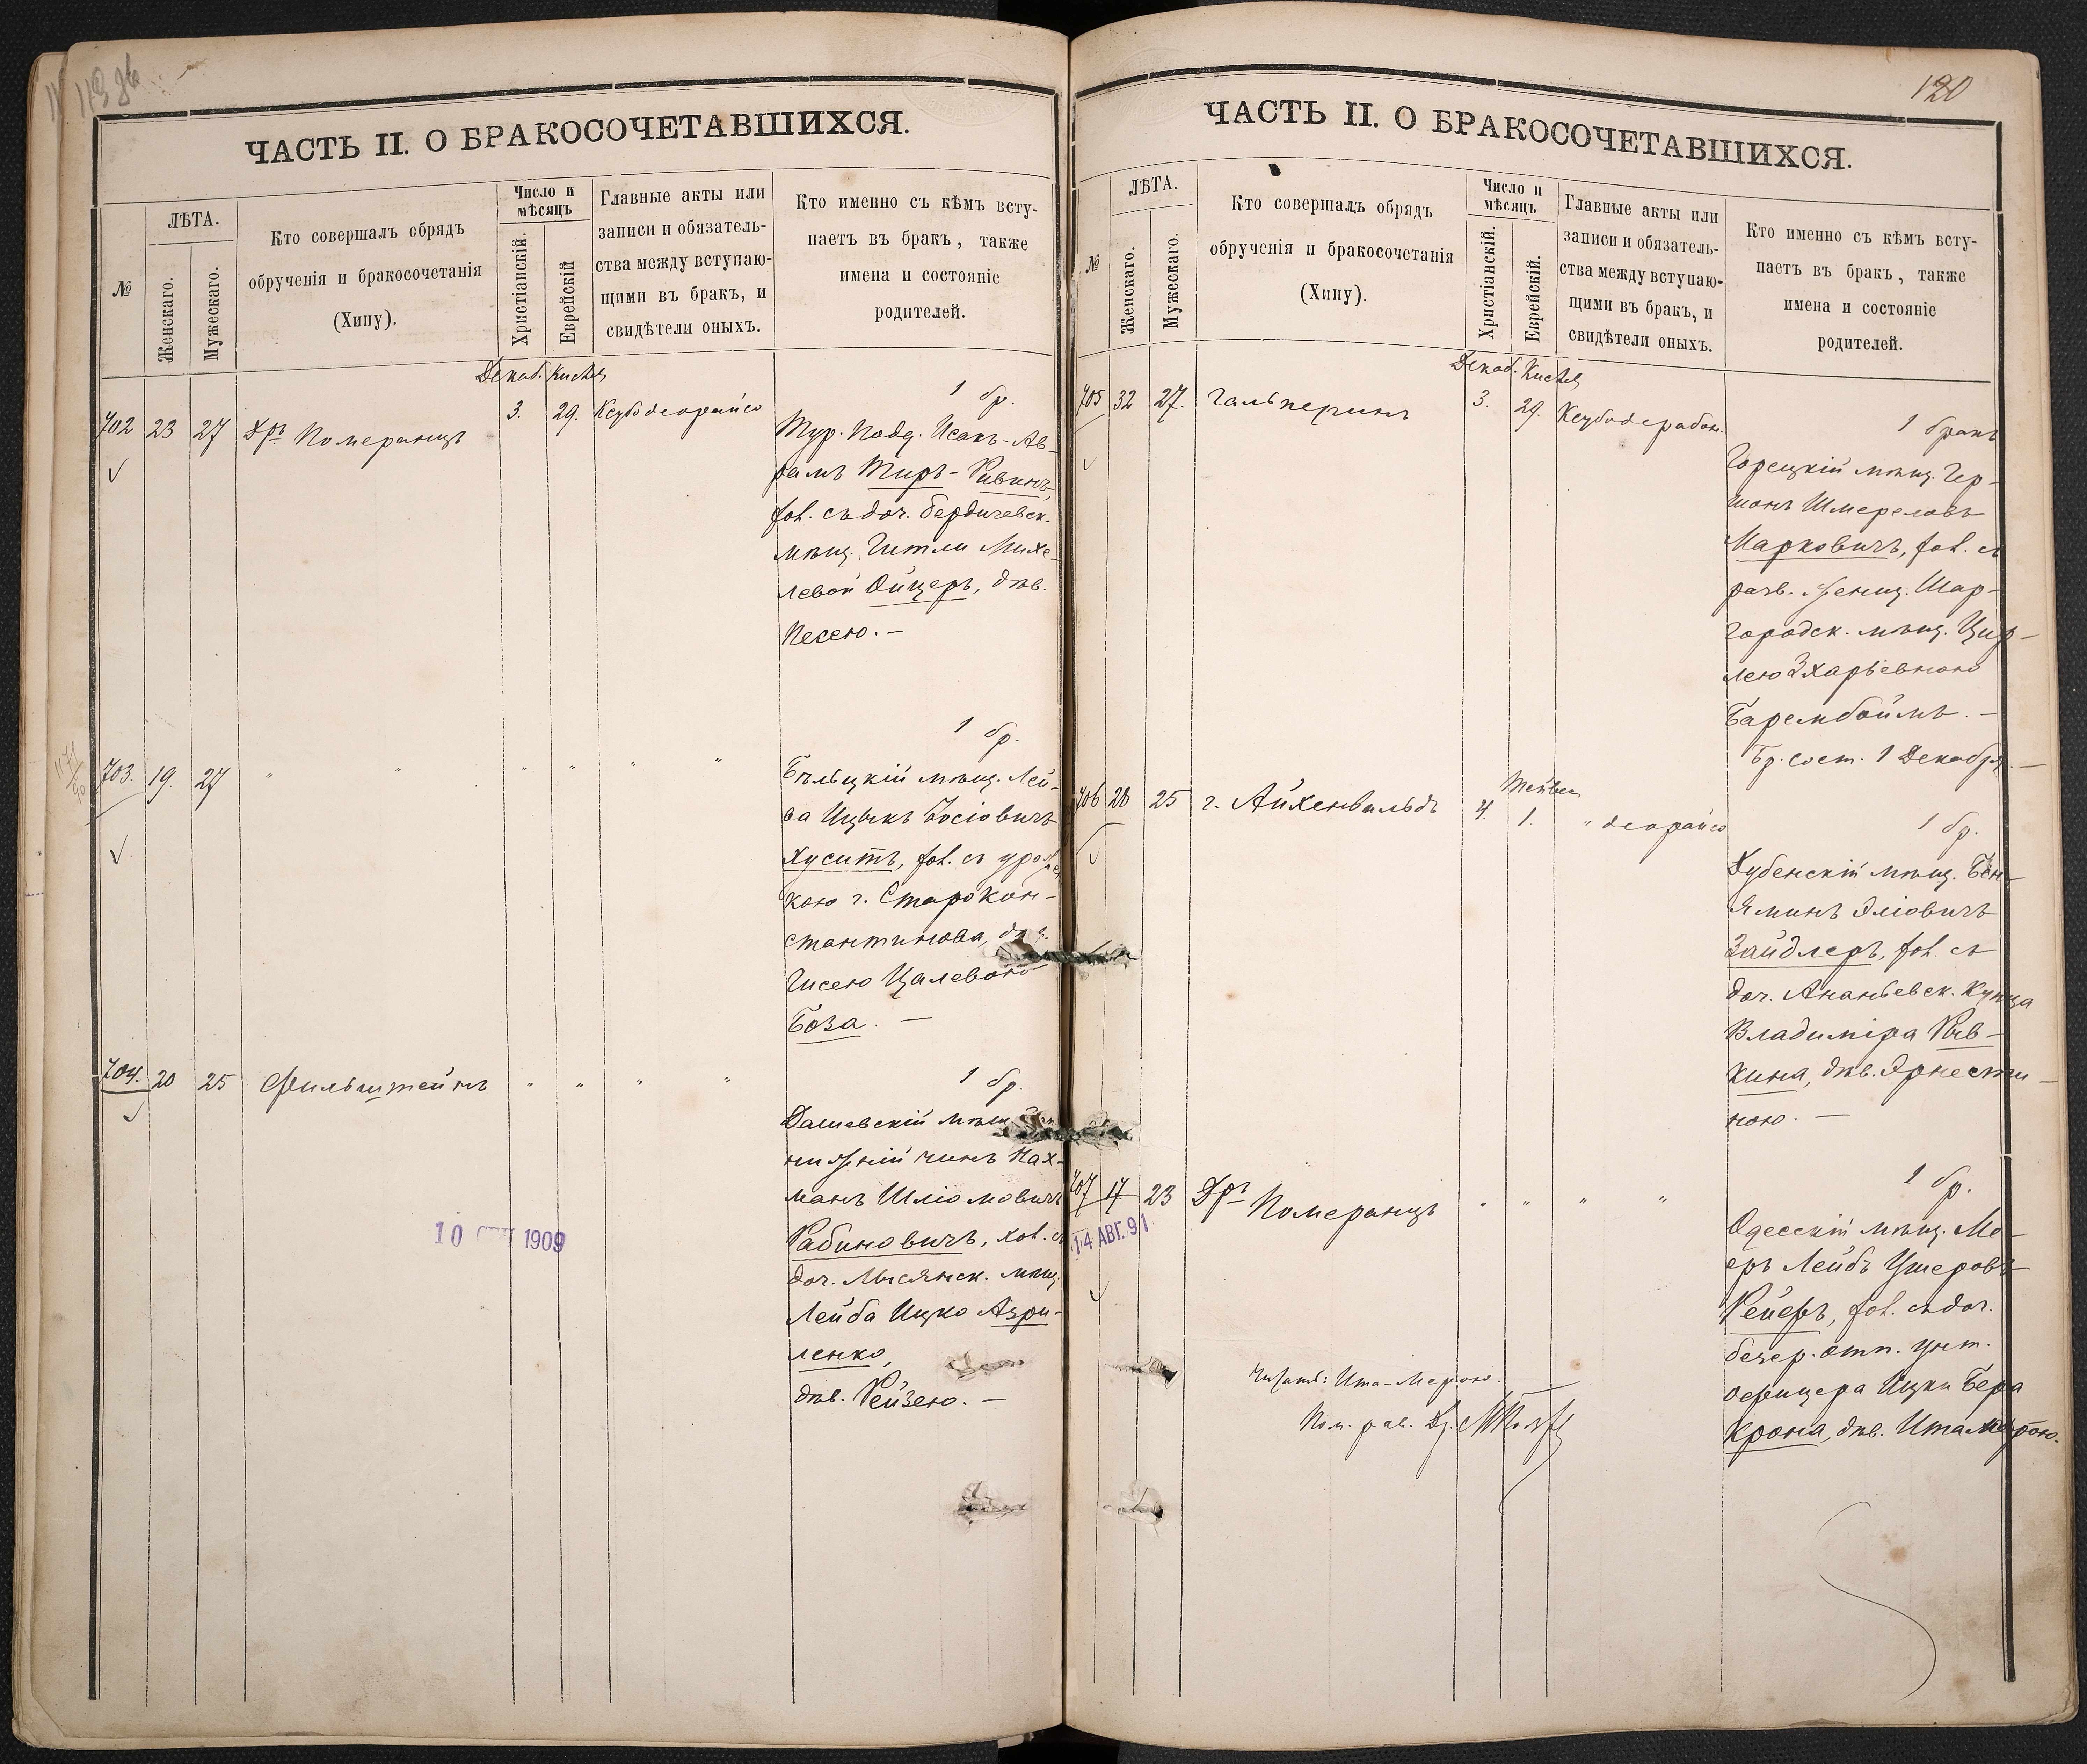 ЧАСТЬ II. О БРАКОСОЧЕТАВШИХСЯ.
№
ЛѢТА.
Женскаго.
Мужескаго.
Кто совершалъ обрядъ
обрученія и бракосочетанія
(Хипу).
Число и
мѣсяцъ
Христіанскій.
Еврейскій
Главные акты или
записи и обязатель-
ства между вступаю-
щими въ бракъ, и
свидѣтели оныхъ.
Кто именно съ кѣмъ всту-
паетъ въ бракъ, также
имена и состояніе
родителей.
Декаб. Кислев
702 23 27 Др. Померанцъ 3. 29. Ксубо деорайсо
1 бр.
Тур. подд. Исакъ-Ав-
рамъ Тиръ-Ривинъ,
хол. съ доч. бердичевск.
мѣщ. Гитли Михе-
левой Ойцеръ, дѣв.
Песею. —
703. 19. 27 " " " " " "
1 бр.
Бѣльцкій мѣщ. Лей-
ба Ицыкъ Іосіовичъ
Хуситъ, хол. съ урож
кою г. Старокон-
стантинова, дѣв.
Гисею Цалевою
Боза. —
704. 20 25 Фильштейнъ " " " "
1 бр.
Дашевскій мѣщ
нижній чинъ Нах-
манъ Шліомовичъ
Рабиновичъ, хол. съ
доч. Лысянск. мѣщ.
Лейба Ицко Азри-
ленко,
дѣв. Рейзею. —
10 1909
120
ЧАСТЬ II. О БРАКОСОЧЕТАВШИХСЯ.
№
ЛѢТА.
Женскаго.
Мужескаго.
Кто совершалъ обрядъ
обрученія и бракосочетанія
(Хипу).
Число и
мѣсяцъ
Христіанскій.
Еврейскій.
Главные акты или
записи и обязатель-
ства между вступаю-
щими въ бракъ, и
свидѣтели оныхъ.
Кто именно съ кѣмъ всту-
паетъ въ бракъ, также
имена и состояніе
родителей.
Декаб. Кислев
705 32 27. Гальперинъ 3. 29. Ксубо дерабон.
1 бракъ
Горецкій мѣщ. Гер-
шонъ Шмереловъ
Марковичъ, хол. съ
разв. женщ. Шар-
городск. мѣщ. Цир-
лею Зхарьевною
Барембоймъ. —
Бр. сост. 1 Декабря. —
Тейвес
706 28 25 г. Айхенвальдъ 4. 1. " деорайсо
1 бр.
Дубенскій мѣщ. Бен-
яминъ Эліовичъ
Зайдлеръ, хол. съ
доч. Ананьевск. купца
Владиміра Рыв-
кина, дѣв. Эрнести-
ною. —
707 17 23 Др. Померанцъ " " " "
14 АВГ. 91
1 бр.
Одесскій мѣщ. Ме-
еръ Лейбъ Ушеровъ
Рейеръ, хол. съ доч.
безср. отп. унт.
офицера Ицки Бера
Крона, дѣв. Ита Мерою.
Читать: Ита-Мерою.
Пом. рав. Др.